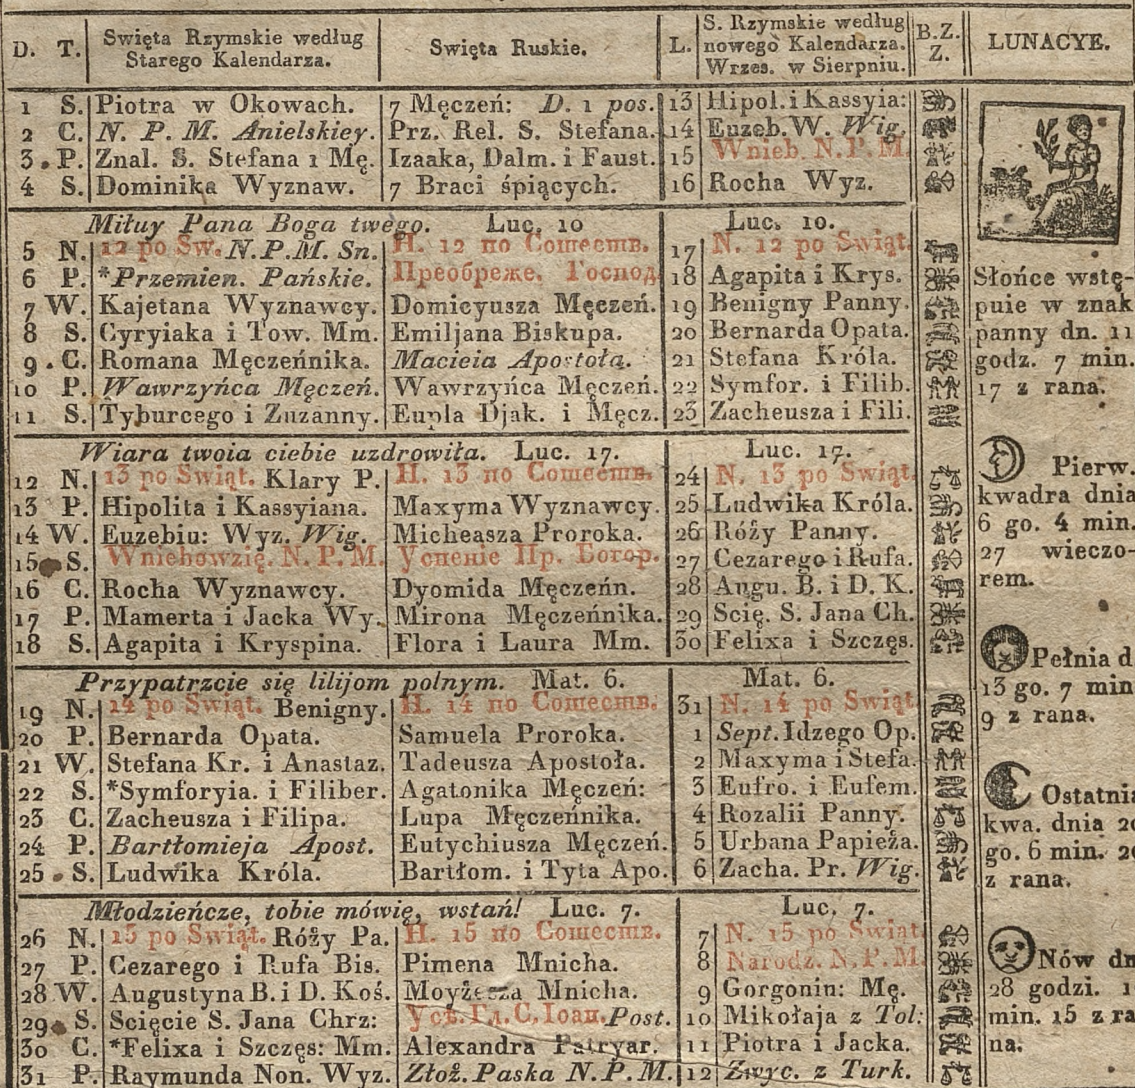 D. T. Swięta Rzymskie według Starego Kalendarza. Swięta Ruskie. L. S. Rzymskie według nowego Kalendarza. Wrzes. w Sierpniu. B.Z. Z. LUNACYE.
1 S. Piotra w Okowach. 7 Męczeń: D. 1 pos. 13 Hipol. i Kassyia:
2 C. N. P. M. Anielskiey. Prz. Rel. S. Stefana. 14 Euzeb. W. Wig.
3. P. Znal. S. Stefana 1 Mę. Izaaka, Dalm. i Faust. 15 Wnieb N. P. M.
4 S. Dominika Wyznaw. 7 Braci śpiących. 16 Rocha Wyz.
Miłuy Pana Boga twego. Luc. 10 Luc. 10.
5 N. 12 po Sw. N. P. M. Sn. Н. 12 по Сошеств. 17 N. 12 po Swiąt.
6 P. *Przemien. Pańskie. Преображе. Господ 18 Agapita i Krys.
7 W. Kajetana Wyznawcy. Domicyusza Męczeń. 19 Benigny Panny.
8 S. Cyryiaka i Tow. Mm. Emiljana Biskupa. 20 Bernarda Opata.
9. C. Romana Męczeńnika. Macieia Apostoła. 21 Stefana Króla.
10 P. Wawrzyńca Męczeń. Wawrzyńca Męczeń. 22 Symfor. i Filib.
11 S. Tyburcego i Zuzanny. Eupla Djak. i Męcz. 23 Zacheusza i Fili.
Słońce wstę-
puie w znak
panny dn. 11
godz. 7 min.
17 z rana.
Wiara twoia ciebie uzdrowiła. Luc. 17. Luc. 17.
12 N. 13 po Swiąt. Klary P. Н. 13 по Сошеств. 24 N. 13 po Swiąt.
13 P. Hipolita i Kassyiana. Maxyma Wyznawcy. 25 Ludwika Króla.
14 W. Euzebiu: Wyz. Wig. Micheasza Proroka. 26 Róży Panny.
15 S. Wniebowzię. N. P. M. Успеніе Пр. Богор. 27 Cezarego i Rufa.
16 C. Rocha Wyznawcy. Dyomida Męczeńn. 28 Angu. B. i D. K.
17 P. Mamerta i Jacka Wy. Mirona Męczeńnika. 29 Scię. S. Jana Ch.
18 S. Agapita i Kryspina. Flora i Laura Mm. 30 Felixa i Szczęs.
Pierw.
kwadra dnia
6 go. 4 min.
27 wieczo-
rem.
Przypatrzcie się lilijom polnym. Mat. 6. Mat. 6.
19 N. 14 po Swiąt. Benigny. Н. 14 по Сошеств. 31 N. 14 po Swiąt
20 P. Bernarda Opata. Samuela Proroka. 1 Sept. Idzego Op.
21 W. Stefana Kr. i Anastaz. Tadeusza Apostoła. 2 Maxyma i Stefa.
22 S. *Symforyia. i Filiber. Agatonika Męczeń: 3 Eufro. i Eufem.
23 C. Zacheusza i Filipa. Lupa Męczeńnika. 4 Rozalii Panny.
24 P. Bartłomieja Apost. Eutychiusza Męczeń. 5 Urbana Papieża.
25. S. Ludwika Króla. Bartłom. i Tyta Apo. 6 Zacha. Pr. Wig.
Pełnia d
13 go. 7 min
9 z rana.
Ostatnia
kwa. dnia 20
go. 6 min. 20
z rana.
Młodzieńcze, tobie mówię, wstań! Luc. 7. Luc. 7.
26 N. 15 po Swiąt. Róży Pa. Н. 15 по Сошеств. 7 N. 15 po Swiąt
27 P. Cezarego i Rufa Bis. Pimena Mnicha. 8 Narodz. N. P. M.
28 W. Augustyna B. i D. Koś. Moyżesza Mnicha. 9 Gorgoniu: Mę.
29 S. Scięcie S. Jana Chrz: Усѣ. Гл. С. Іоан. Post. 10 Mikołaja z Tol:
30 C. *Felixa i Szczęs: Mm. Alexandra Patryar. 11 Piotra i Jacka.
31 P. Raymunda Non. Wyz. Złoż. Paska N. P. M. 12 Zwyc. z Turk.
Nów dn
28 godzi. 1
min. 15 z ra
na.